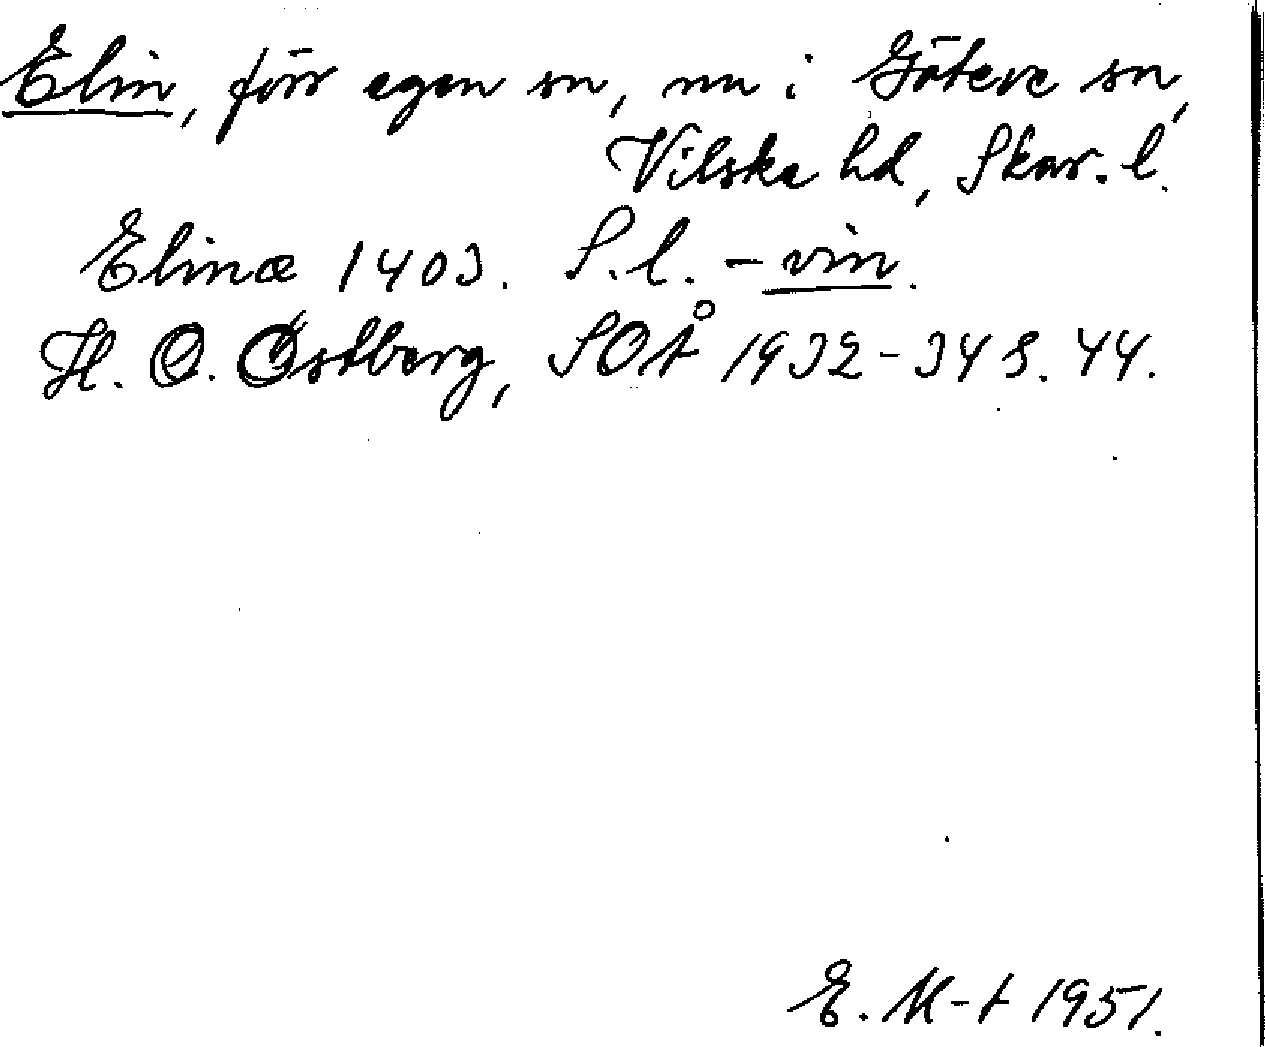 Elin, förr egen sn, nu i Göteve sn,
Vilske hd, Skar. l.
Elinæ 1403. S.l. - vin.
H. O. Østberg, SOÅ 1932-34 s. 44.
E. M-t 1951.